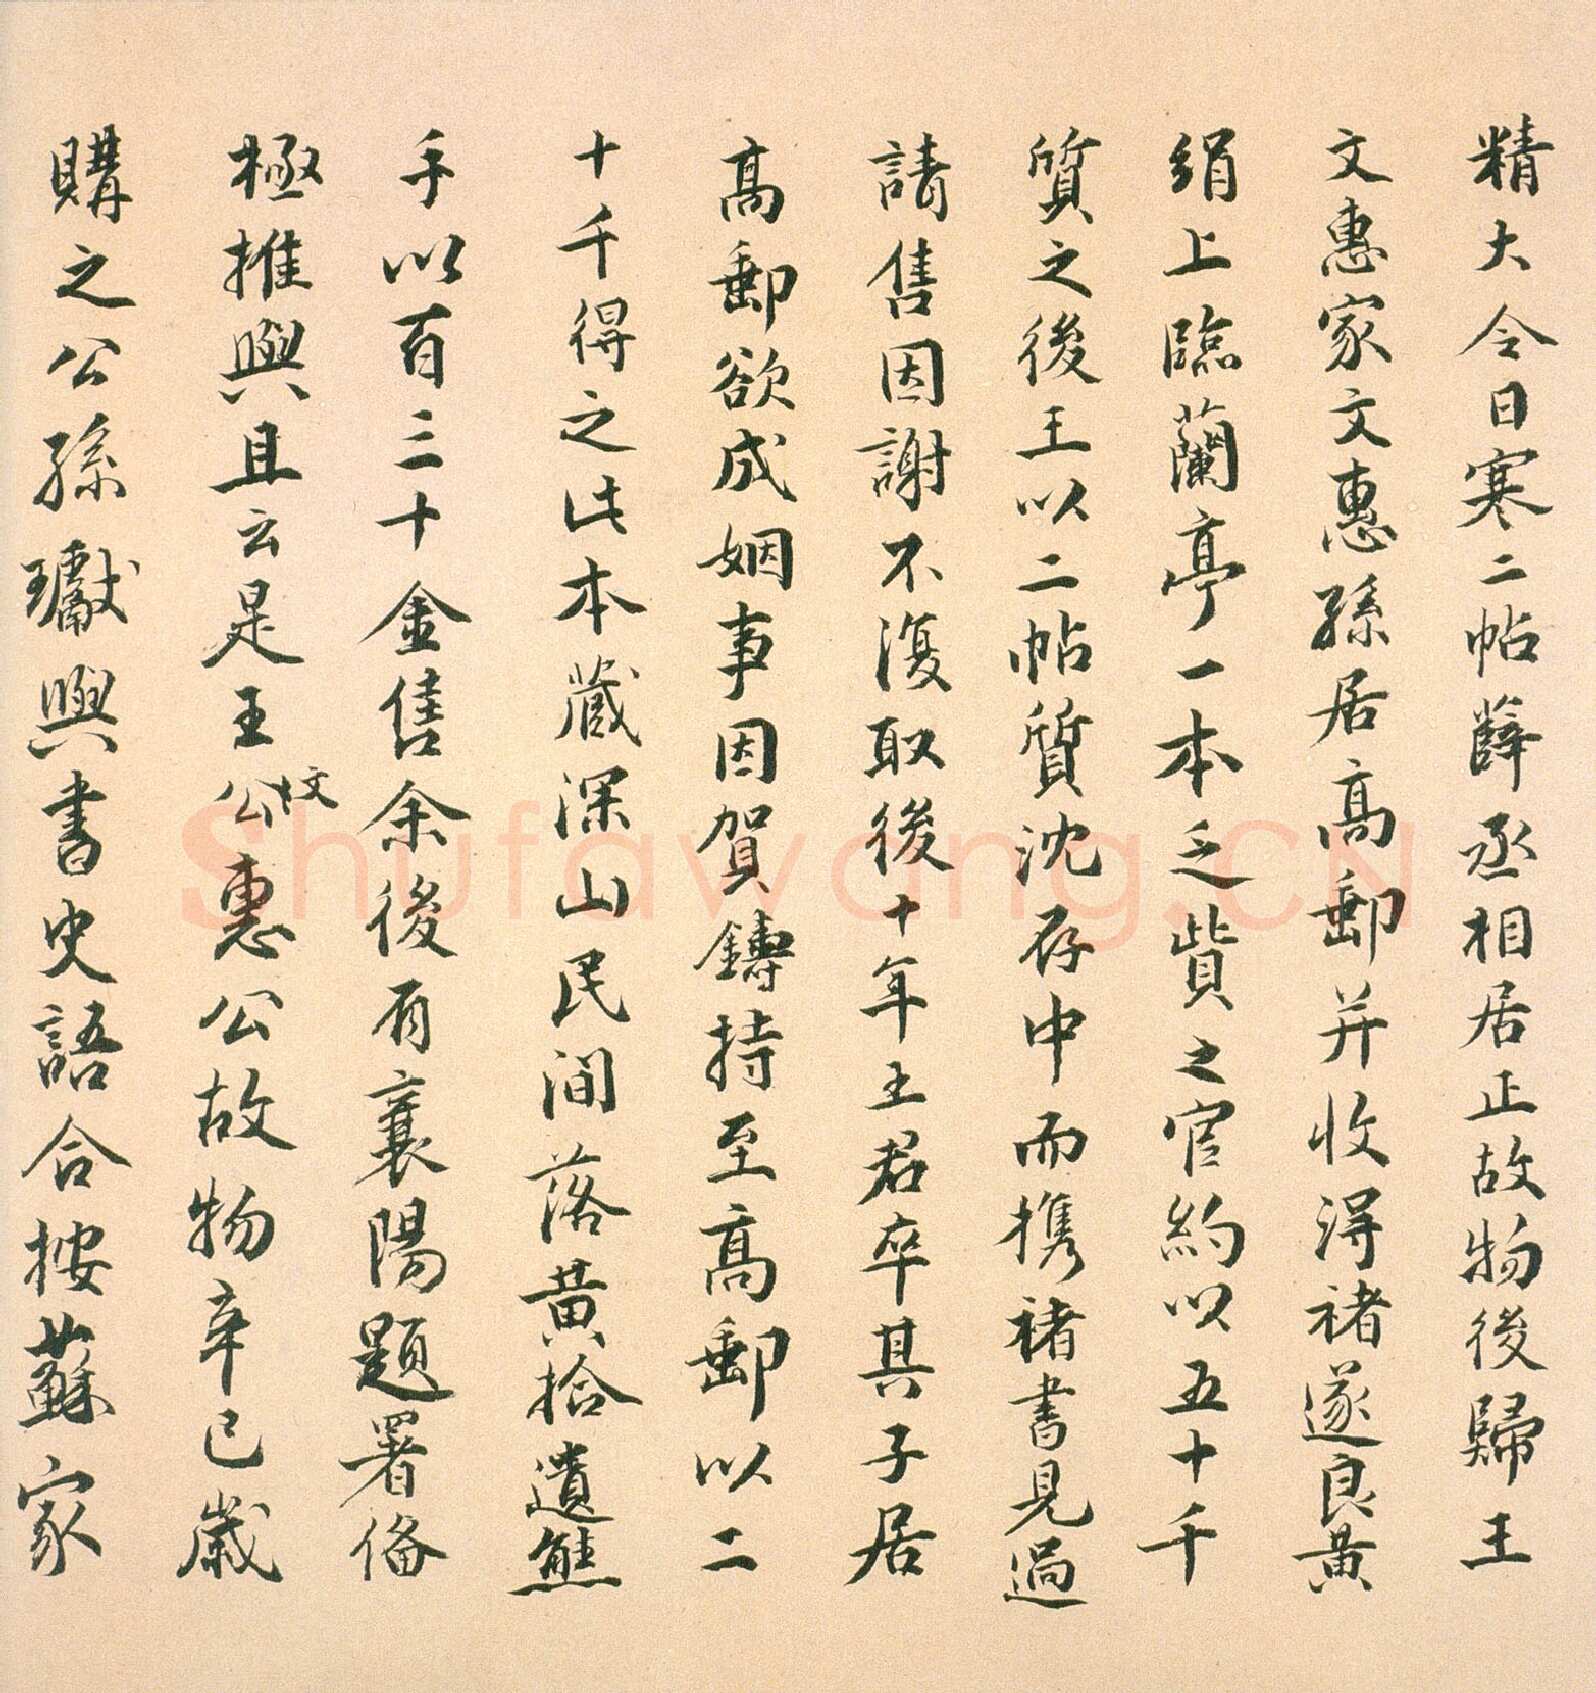 精大令日寒二帖薛丞相居正故物後歸王
文惠家文惠孫居高郵并收得褚遂良黃
絹上臨蘭亭一本乏貲之官約以五十千
質之後王以二帖質沈存中而携褚書見過
請售因謝不復取後十年王君卒其子居
高郵欲成姻事因賀鑄持至高郵以二
十千得之此本藏深山民間落黃拾遺熊
手以百三十金售余後有襄陽題署俻
極推與且云是王公文惠公故物辛巳歲
購之公孫瓛與書史語合按蘇家
Shufawang.CN